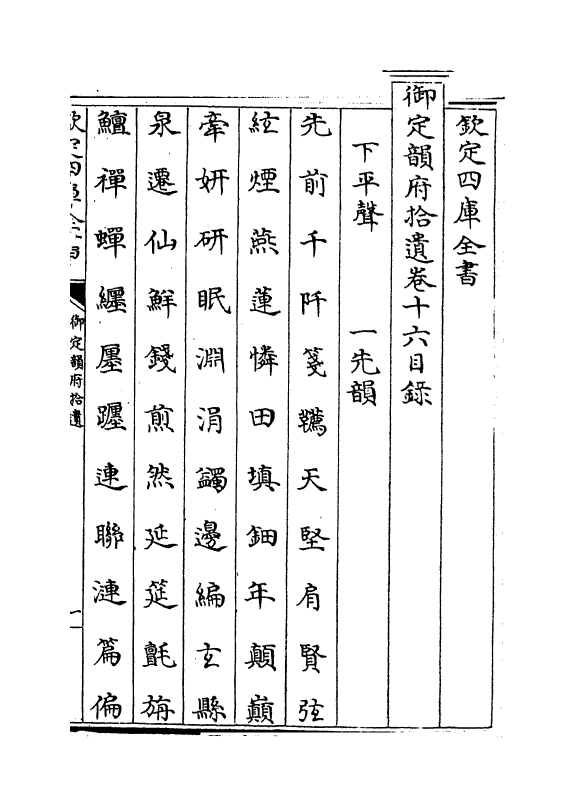 欽定四庫全書
御定韻府拾遺卷十六目錄
下平聲　一先韻
先前千阡箋韉天堅肩賢弦
絃煙燕蓮憐田填鈿年顛巔
牽妍研眠淵涓蠲邊編玄縣
泉遷仙鮮錢煎然延筵氈旃
鱣禪蟬纏廛躔連聯漣篇偏
御定韻府拾遺
一